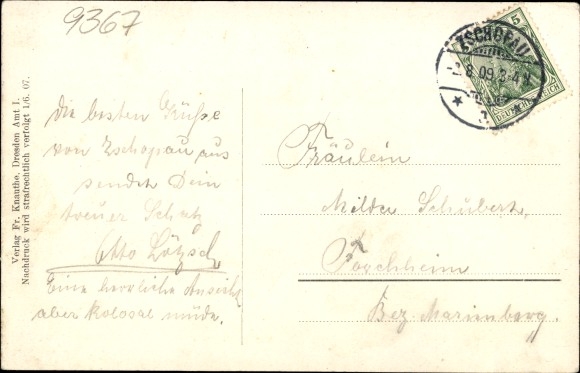 9367
ZSCHOPAU
2.8.09. 3-4 N
5
DEUTSCHES REICH
Verlag Fr. Knauthe, Dresden Amt I.
Nachdruck wird strafrechtlich verfolgt 1/6. 07.
Die besten Grüße
von Zschopau aus
sendet Dein
treuer Schatz
Otto Lötzsch
Eine herrliche Aussicht
aber kolosal müde.
Fräulein
Milda Schubert,
Forchheim
Bez. Marienberg.